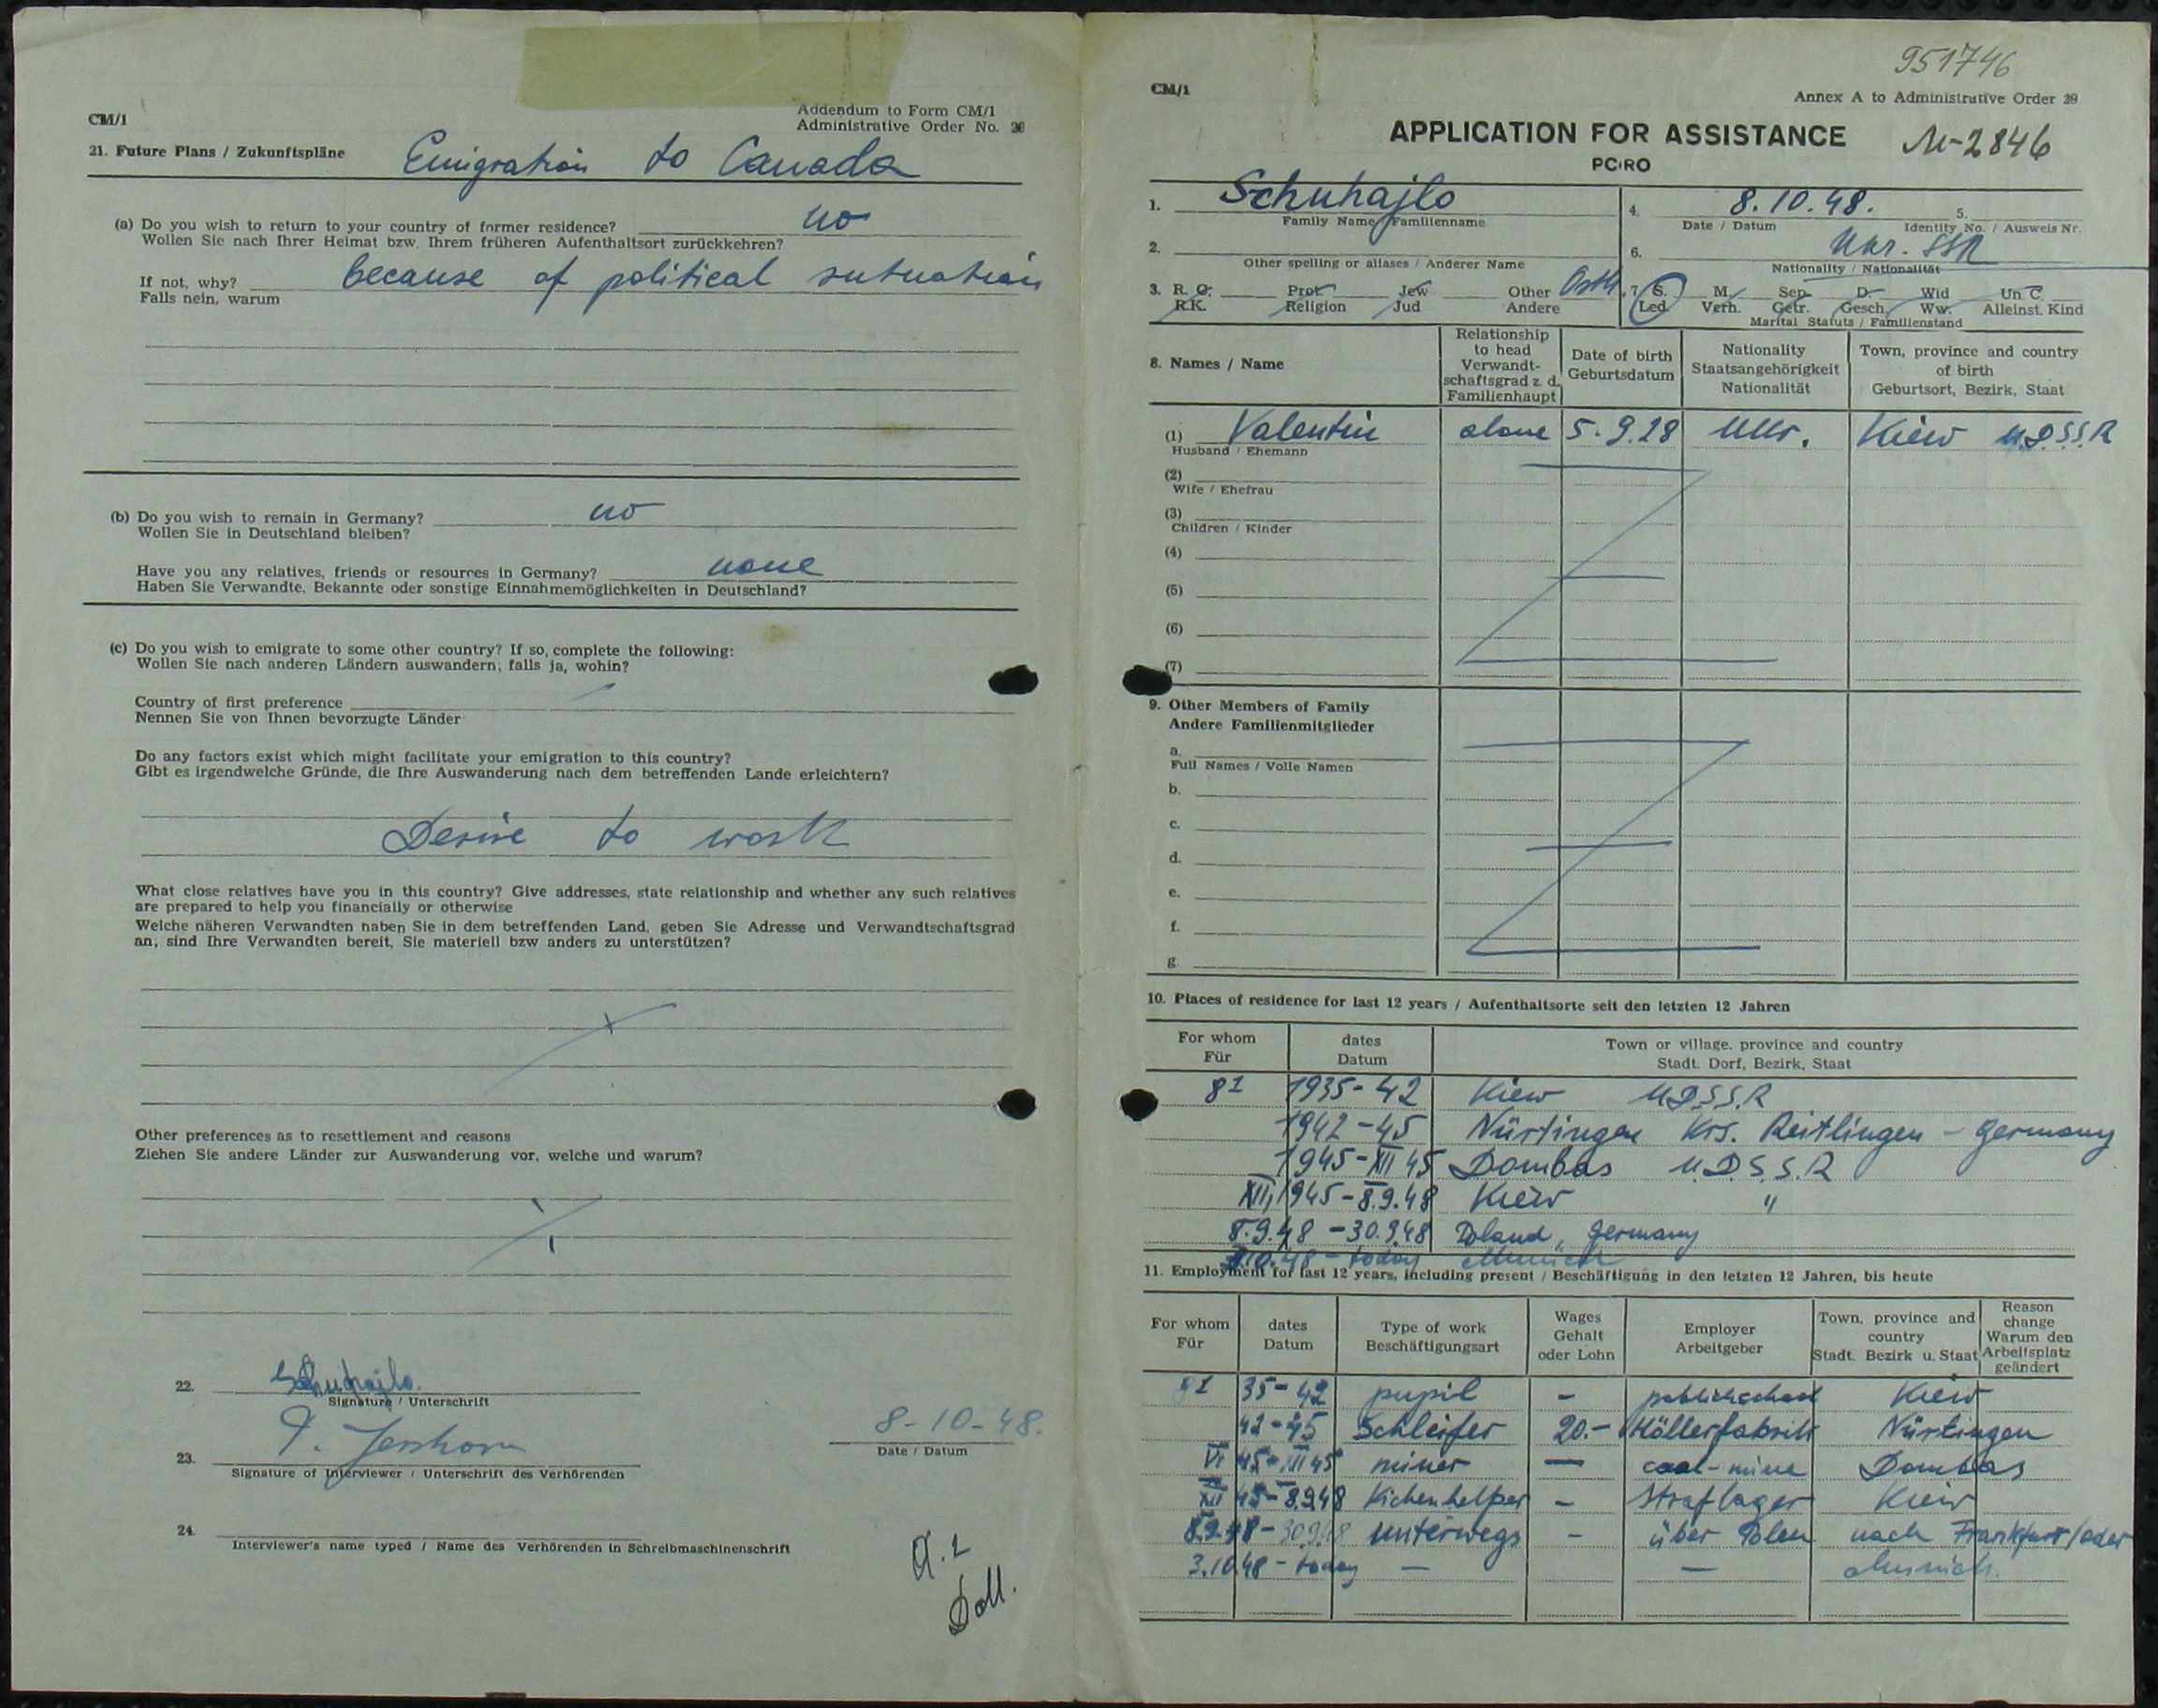 CM/1
Addendum to Form CM/1
Administrative Order No.
21. Future Plans / Zukunftspläne Emigration to Canada
(a) Do you wish to return to your country of former residence? no
Wollen Sie nach Ihrer Heimat bzw. Ihrem früheren Aufenthaltsort zurückkehren?
If not, why? because of political sutuation
Falls nein, warum
(b) Do you wish to remain in Germany? no
Wollen Sie in Deutschland bleiben?
Have you any relatives, friends or resources in Germany? none
Haben Sie Verwandte, Bekannte oder sonstige Einnahmemöglichkeiten in Deutschland?
(c) Do you wish to emigrate to some other country? If so, complete the following:
Wollen Sie nach anderen Ländern auswandern; falls ja, wohin?
Country of first preference
Nennen Sie von Ihnen bevorzugte Länder
Do any factors exist which might facilitate your emigration to this country?
Gibt es irgendwelche Gründe, die Ihre Auswanderung nach dem betreffenden Lande erleichtern?
Desire to work
What close relatives have you in this country? Give addresses, state relationship and whether any such relatives
are prepared to help you financially or otherwise
Welche näheren Verwandten haben Sie in dem betreffenden Land, geben Sie Adresse und Verwandtschaftsgrad
an; sind Ihre Verwandten bereit, Sie materiell bzw anders zu unterstützen?
Other preferences as to resettlement and reasons
Ziehen Sie andere Länder zur Auswanderung vor, welche und warum?
22. Schuhajlo.
Signature / Unterschrift
8-10-48.
Date / Datum
23.
Signature of Interviewer / Unterschrift des Verhörenden
24.
Interviewer's name typed / Name des Verhörenden in Schreibmaschinenschrift
951746
CM/1
Annex A to Administrative Order 29
APPLICATION FOR ASSISTANCE M-2846
PCIRO
1. Schuhajlo
Family Name / Familienname
4. 8.10.48.
Date / Datum
5.
Identity No. / Ausweis Nr.
2.
Other spelling or aliases / Anderer Name
6. Ukr. SSR
Nationality / Nationalität
3. R. C. Prot Jew Other Orth.
R.K. Religion Jud Andere
7. S. M. Sep. D. Wid Un C.
Led. Verh. Getr. Gesch. Ww. Alleinst. Kind
Marital Statuts / Familienstand
8. Names / Name
Relationship
to head
Verwandt-
schaftsgrad z. d.
Familienhaupt
Date of birth
Geburtsdatum
Nationality
Staatsangehörigkeit
Nationalität
Town, province and country
of birth
Geburtsort, Bezirk, Staat
(1) Valentin alone 5.9.28 Ukr. Kiew U.d.S.S.R
Husband / Ehemann
(2)
Wife / Ehefrau
(3)
Children / Kinder
(4)
(5)
(6)
(7)
9. Other Members of Family
Andere Familienmitglieder
a.
Full Names / Volle Namen
b.
c.
d.
e.
f.
g
10. Places of residence for last 12 years / Aufenthaltsorte seit den letzten 12 Jahren
For whom
Für
dates
Datum
Town or village, province and country
Stadt, Dorf, Bezirk, Staat
81 1935-42 Kiew UdSS.R
1942-45 Nürtingen Krs. Reitlingen - Germany
1945-XII 45 Dombas U.D.S.S.R
XII,1945-8.9.48 Kiew "
8.9.48 - 30.9.48 Poland, Germany
3.10.48 - today Munich
11. Employment for last 12 years, including present / Beschäftigung in den letzten 12 Jahren, bis heute
For whom
Für
dates
Datum
Type of work
Beschäftigungsart
Wages
Gehalt
oder Lohn
Employer
Arbeitgeber
Town, province and
country
Stadt. Bezirk u. Staat
Reason
change
Warum den
Arbeitsplatz
geändert
81 35-42 pupil - publikschool Kiew
42-45 Schleifer 20.- Höllerfabrik Nürtingen
VI 45-XII 45 miner - coal-mine Dombas
XII 45-8.9.48 Kichenhelper - Straflager Kiew
8.9.48-30.9.48 unterwegs - über Polen nach Frankfurt/oder
3.10.48 - today - - Munich.